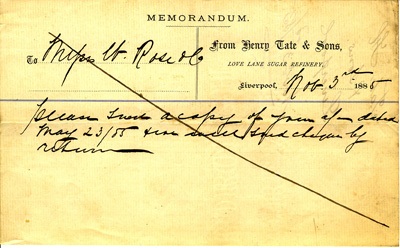 MEMORANDUM.
From Henry Tate & Sons,
To Messrs W. Rose & Co
LOVE LANE SUGAR REFINERY,
Liverpool, Nov 3rd 1885
Please send a copy of your a/c dated
May 23/85 & we will send cheque by
return